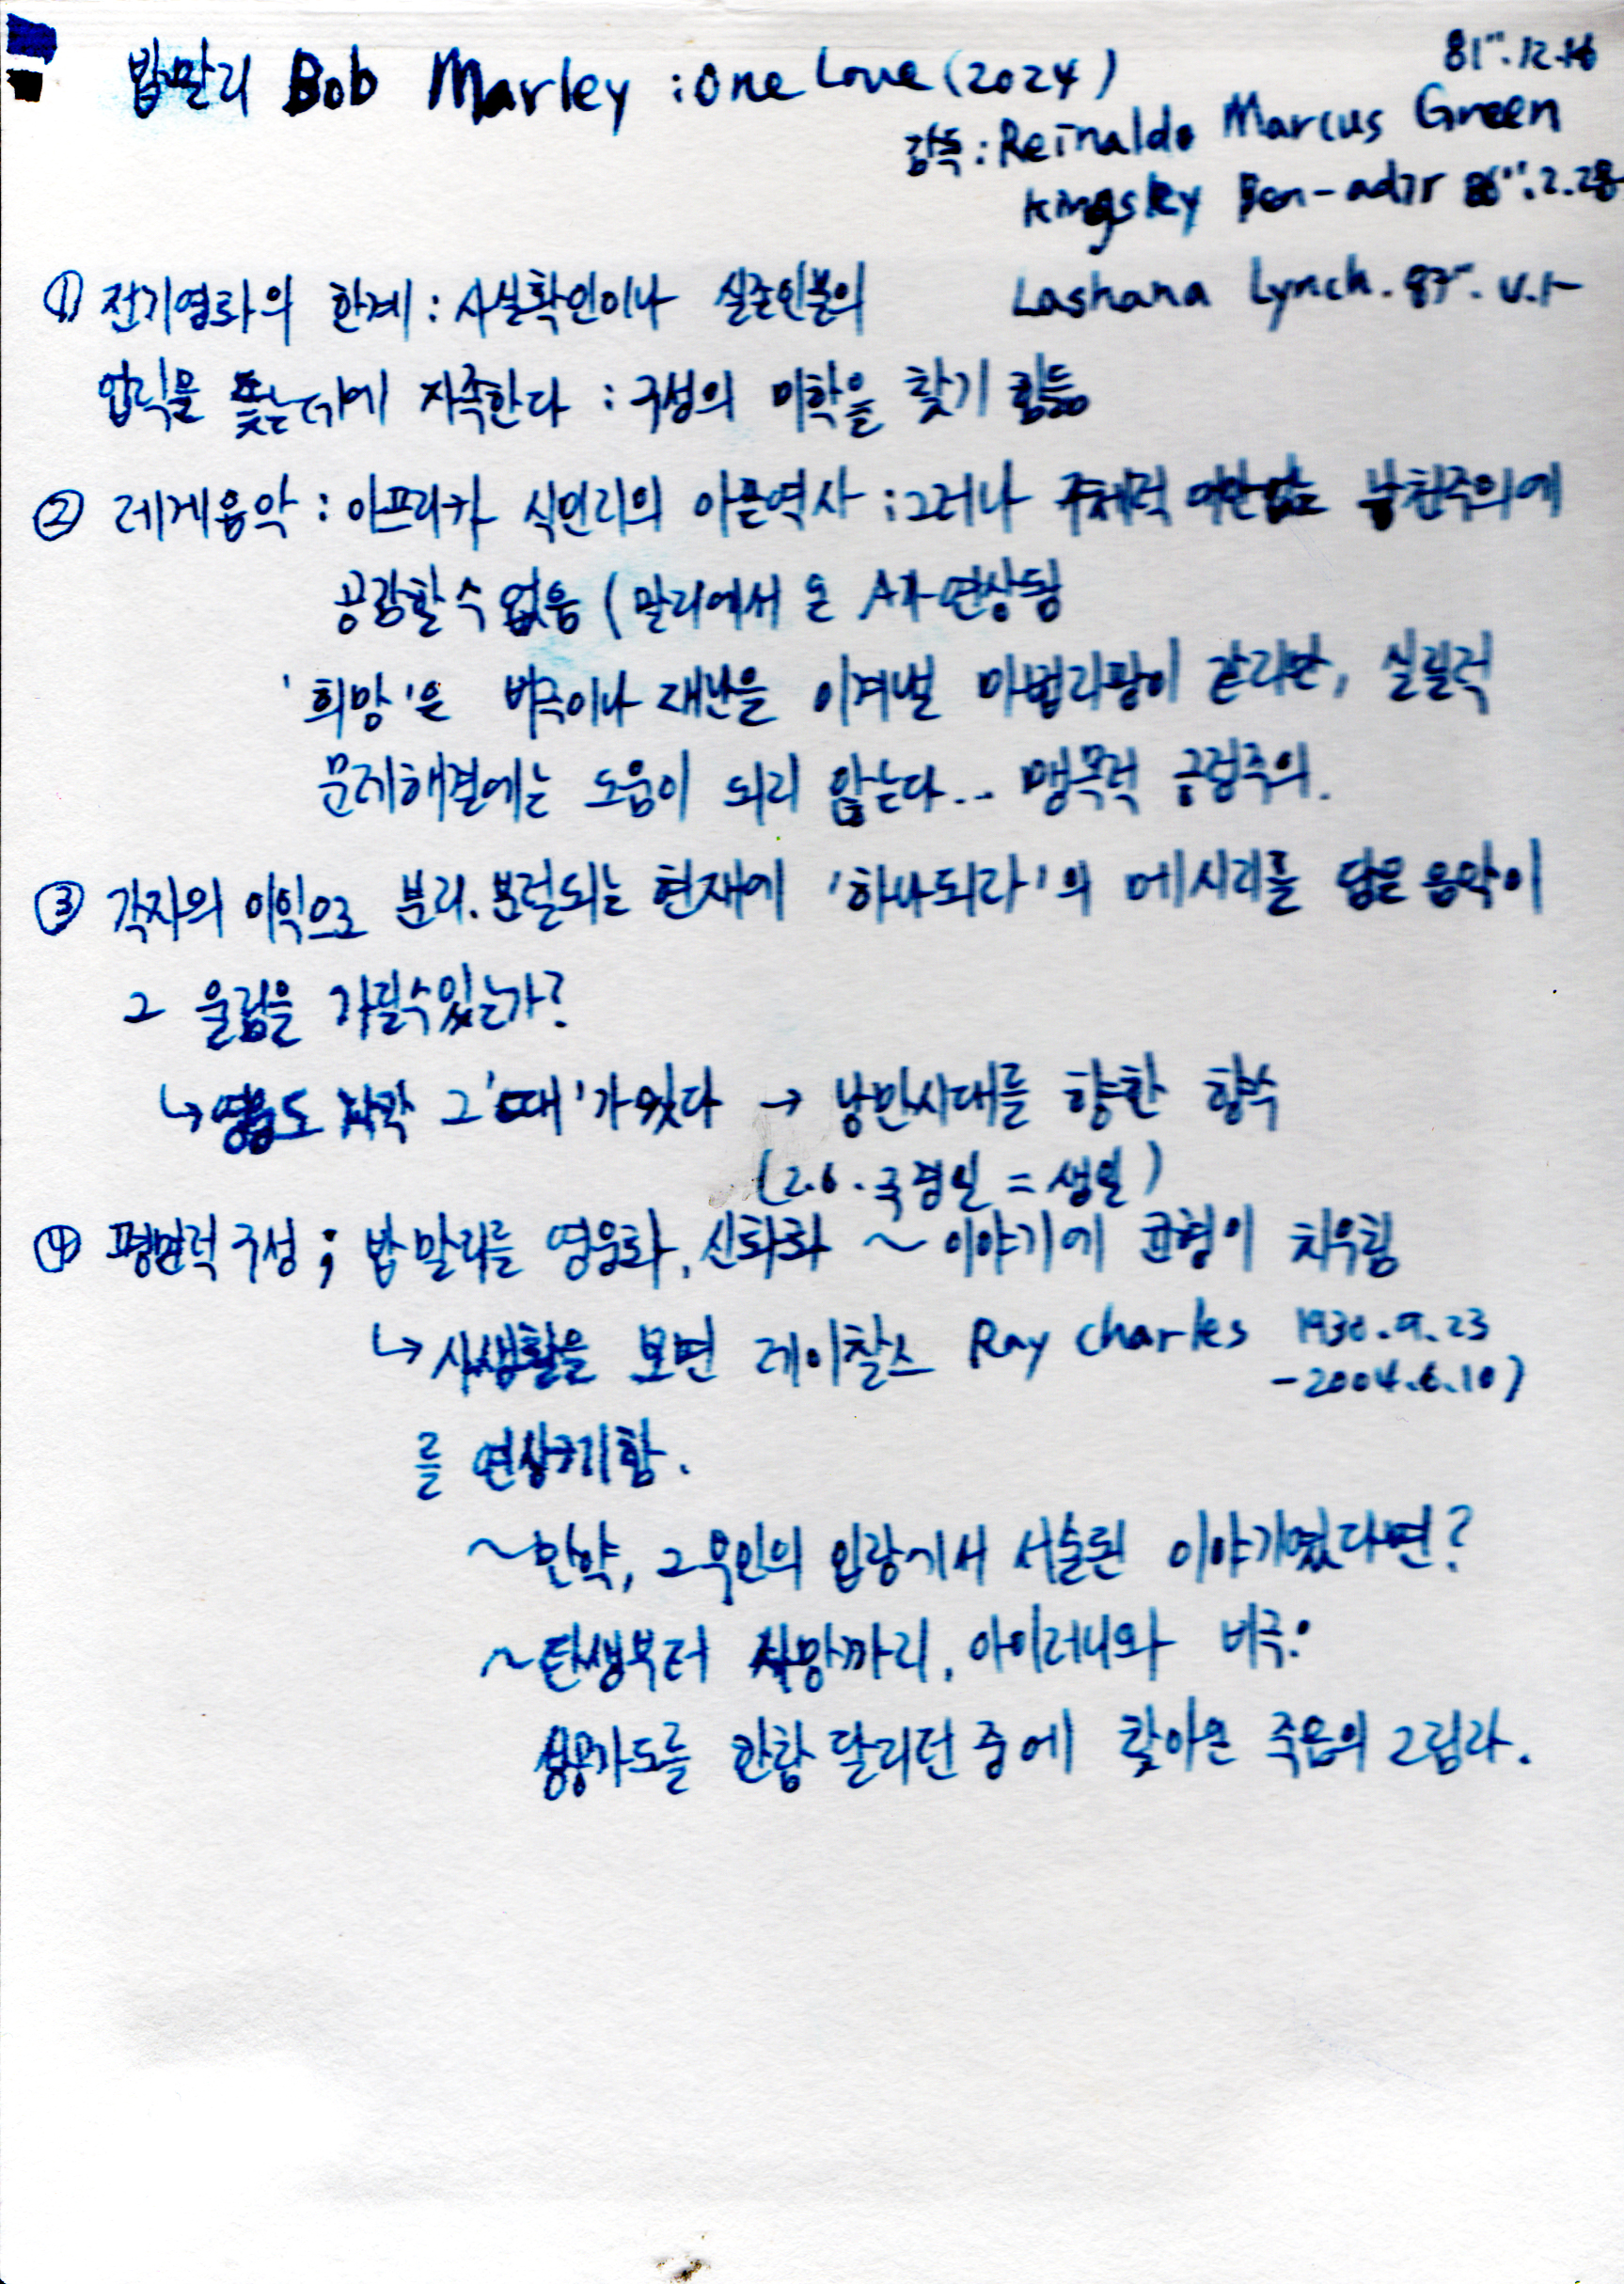 밥말리 Bob Marley : One Love (2024)
81'''.12.16
감독 : Reinaldo Marcus Green
Kingsley Ben-adir 86'''.2.28
Lashana Lynch. 87'''.
① 전기영화의 한계 : 사실확인이나 실존인물의
업적을 쫓는데에 자족한다 : 구성의 미학을 찾기 힘듬
② 레게음악 : 아프리카 식민지의 아픈역사 : 그러나 주체적 낭천주의에
공감할 수 없음 (말리에서 온 A가 연상됨
'희망'은 비극이나 재난을 이겨낼 마법과 같이 같지만, 실질적
문제해결에는 도움이 되지 않는다... 맹목적 긍정주의.
③ 각자의 이익으로 분리. 분열되는 현재에 '하나되라'의 메시지를 담은 음악이
그 울림을 가질 수 있는가?
↳ 영웅도 그'때'가 있다 → 낭만시대를 향한 향수
(2.6. 국경일 = 생일)
④ 평면적 구성 ; 밥 말리를 영웅화, 신화화 ~ 이야기에 균형이 치우침
↳ 사생활을 보면 레이찰스 Ray Charles 1930.9.23
- 2004.6.10)
를 연상케 함.
~ 만약, 그 부인의 입장에서 서술된 이야기였다면?
~ 탄생부터 사망까지, 아이러니와 비극:
성공가도를 한참 달리던 중에 찾아온 죽음의 그림자.